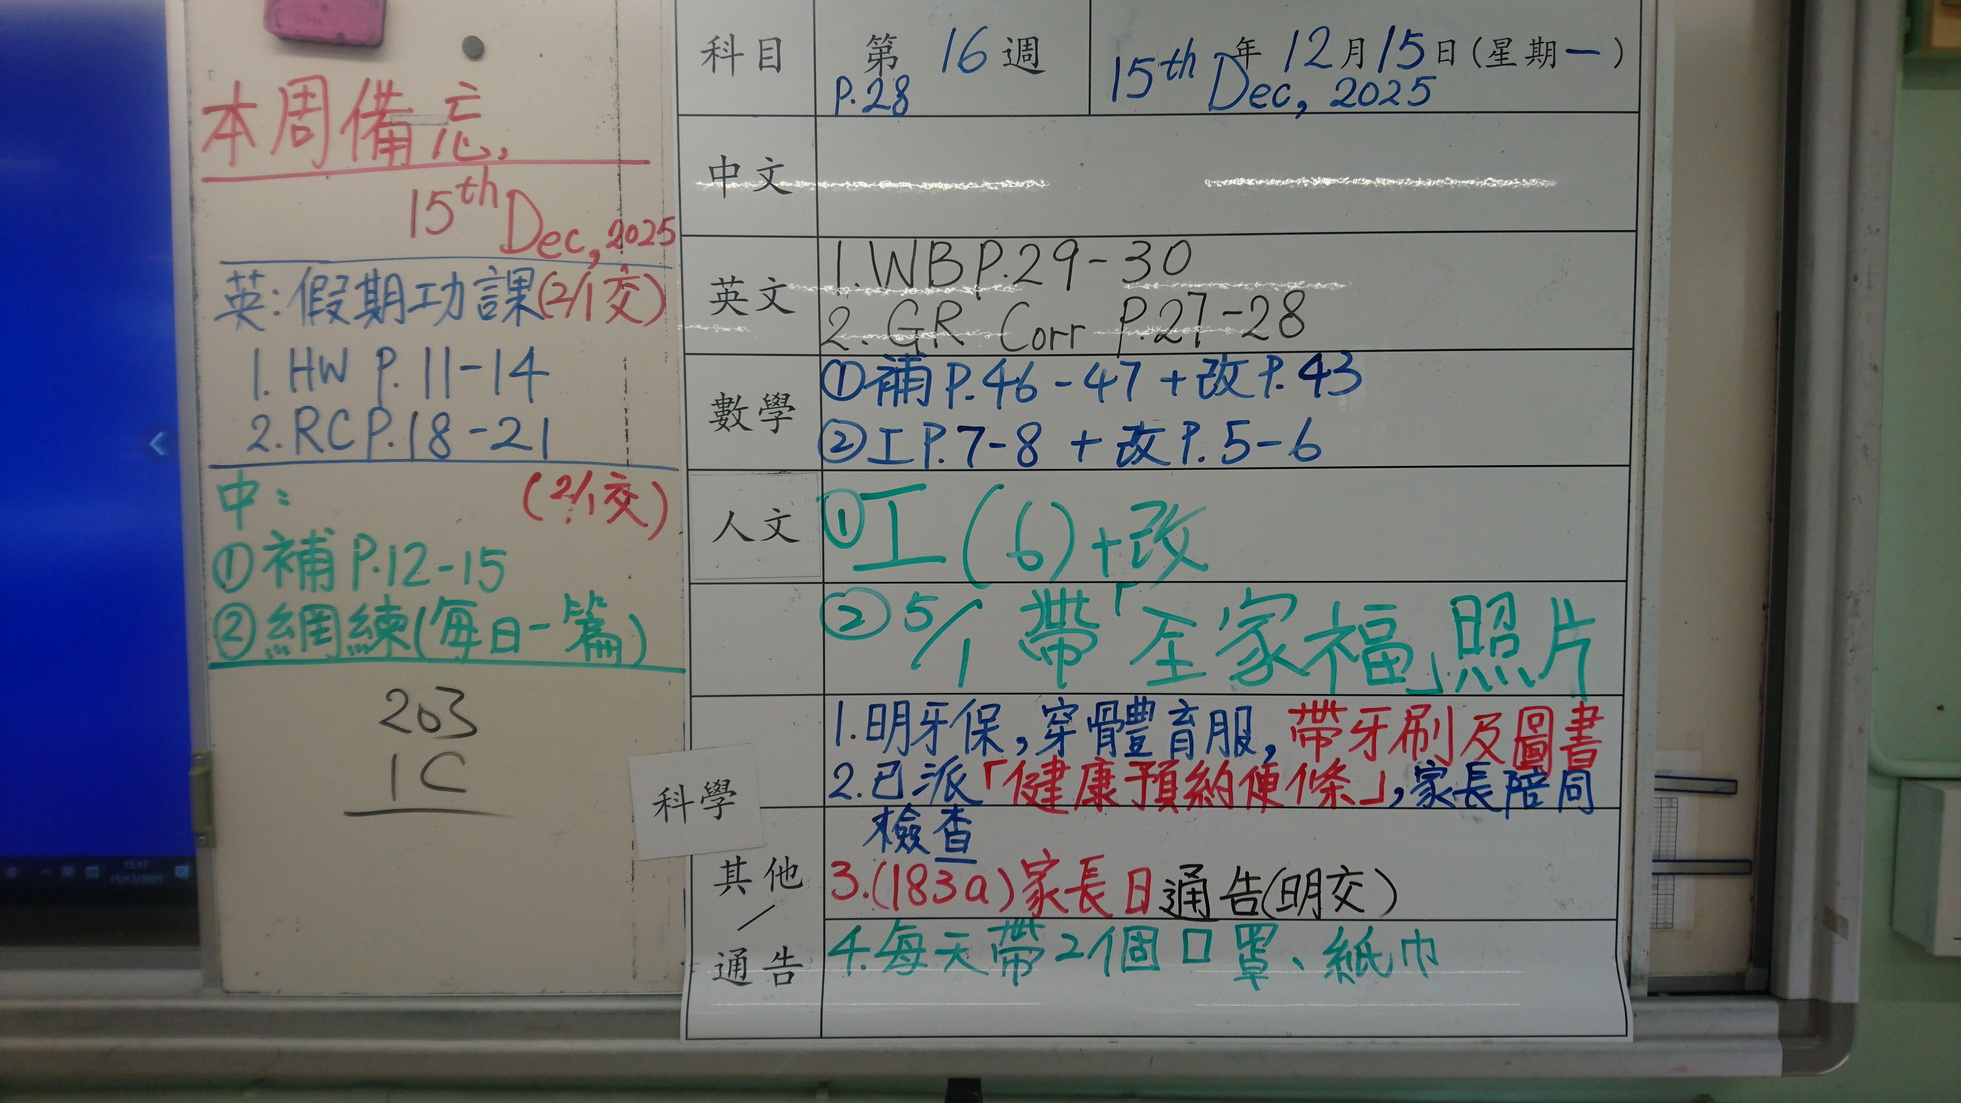 本周備忘
15th Dec, 2025
英:假期功課(2/1交)
1. HW P.11-14
2. RC P.18-21
中: (2/1交)
①補 P.12-15
②網練(每日一篇)
203
1C
科目 第 16 週 年 12 月 15 日 (星期一)
P.28 15th Dec, 2025
中文
英文
1. WB P.29-30
2. GR Corr P.27-28
數學
①補 P.46-47 + 改 P.43
②工 P.7-8 + 改 P.5-6
人文
①工(6)+改
②5/1 帶「全家福」照片
科學
1. 明牙保, 穿體育服, 帶牙刷及圖書
2. 已派「健康預約便條」, 家長陪同
檢查
其他/通告
3. (183a) 家長日通告(明交)
4. 每天帶2個口罩、紙巾
15:17
15/12/2025